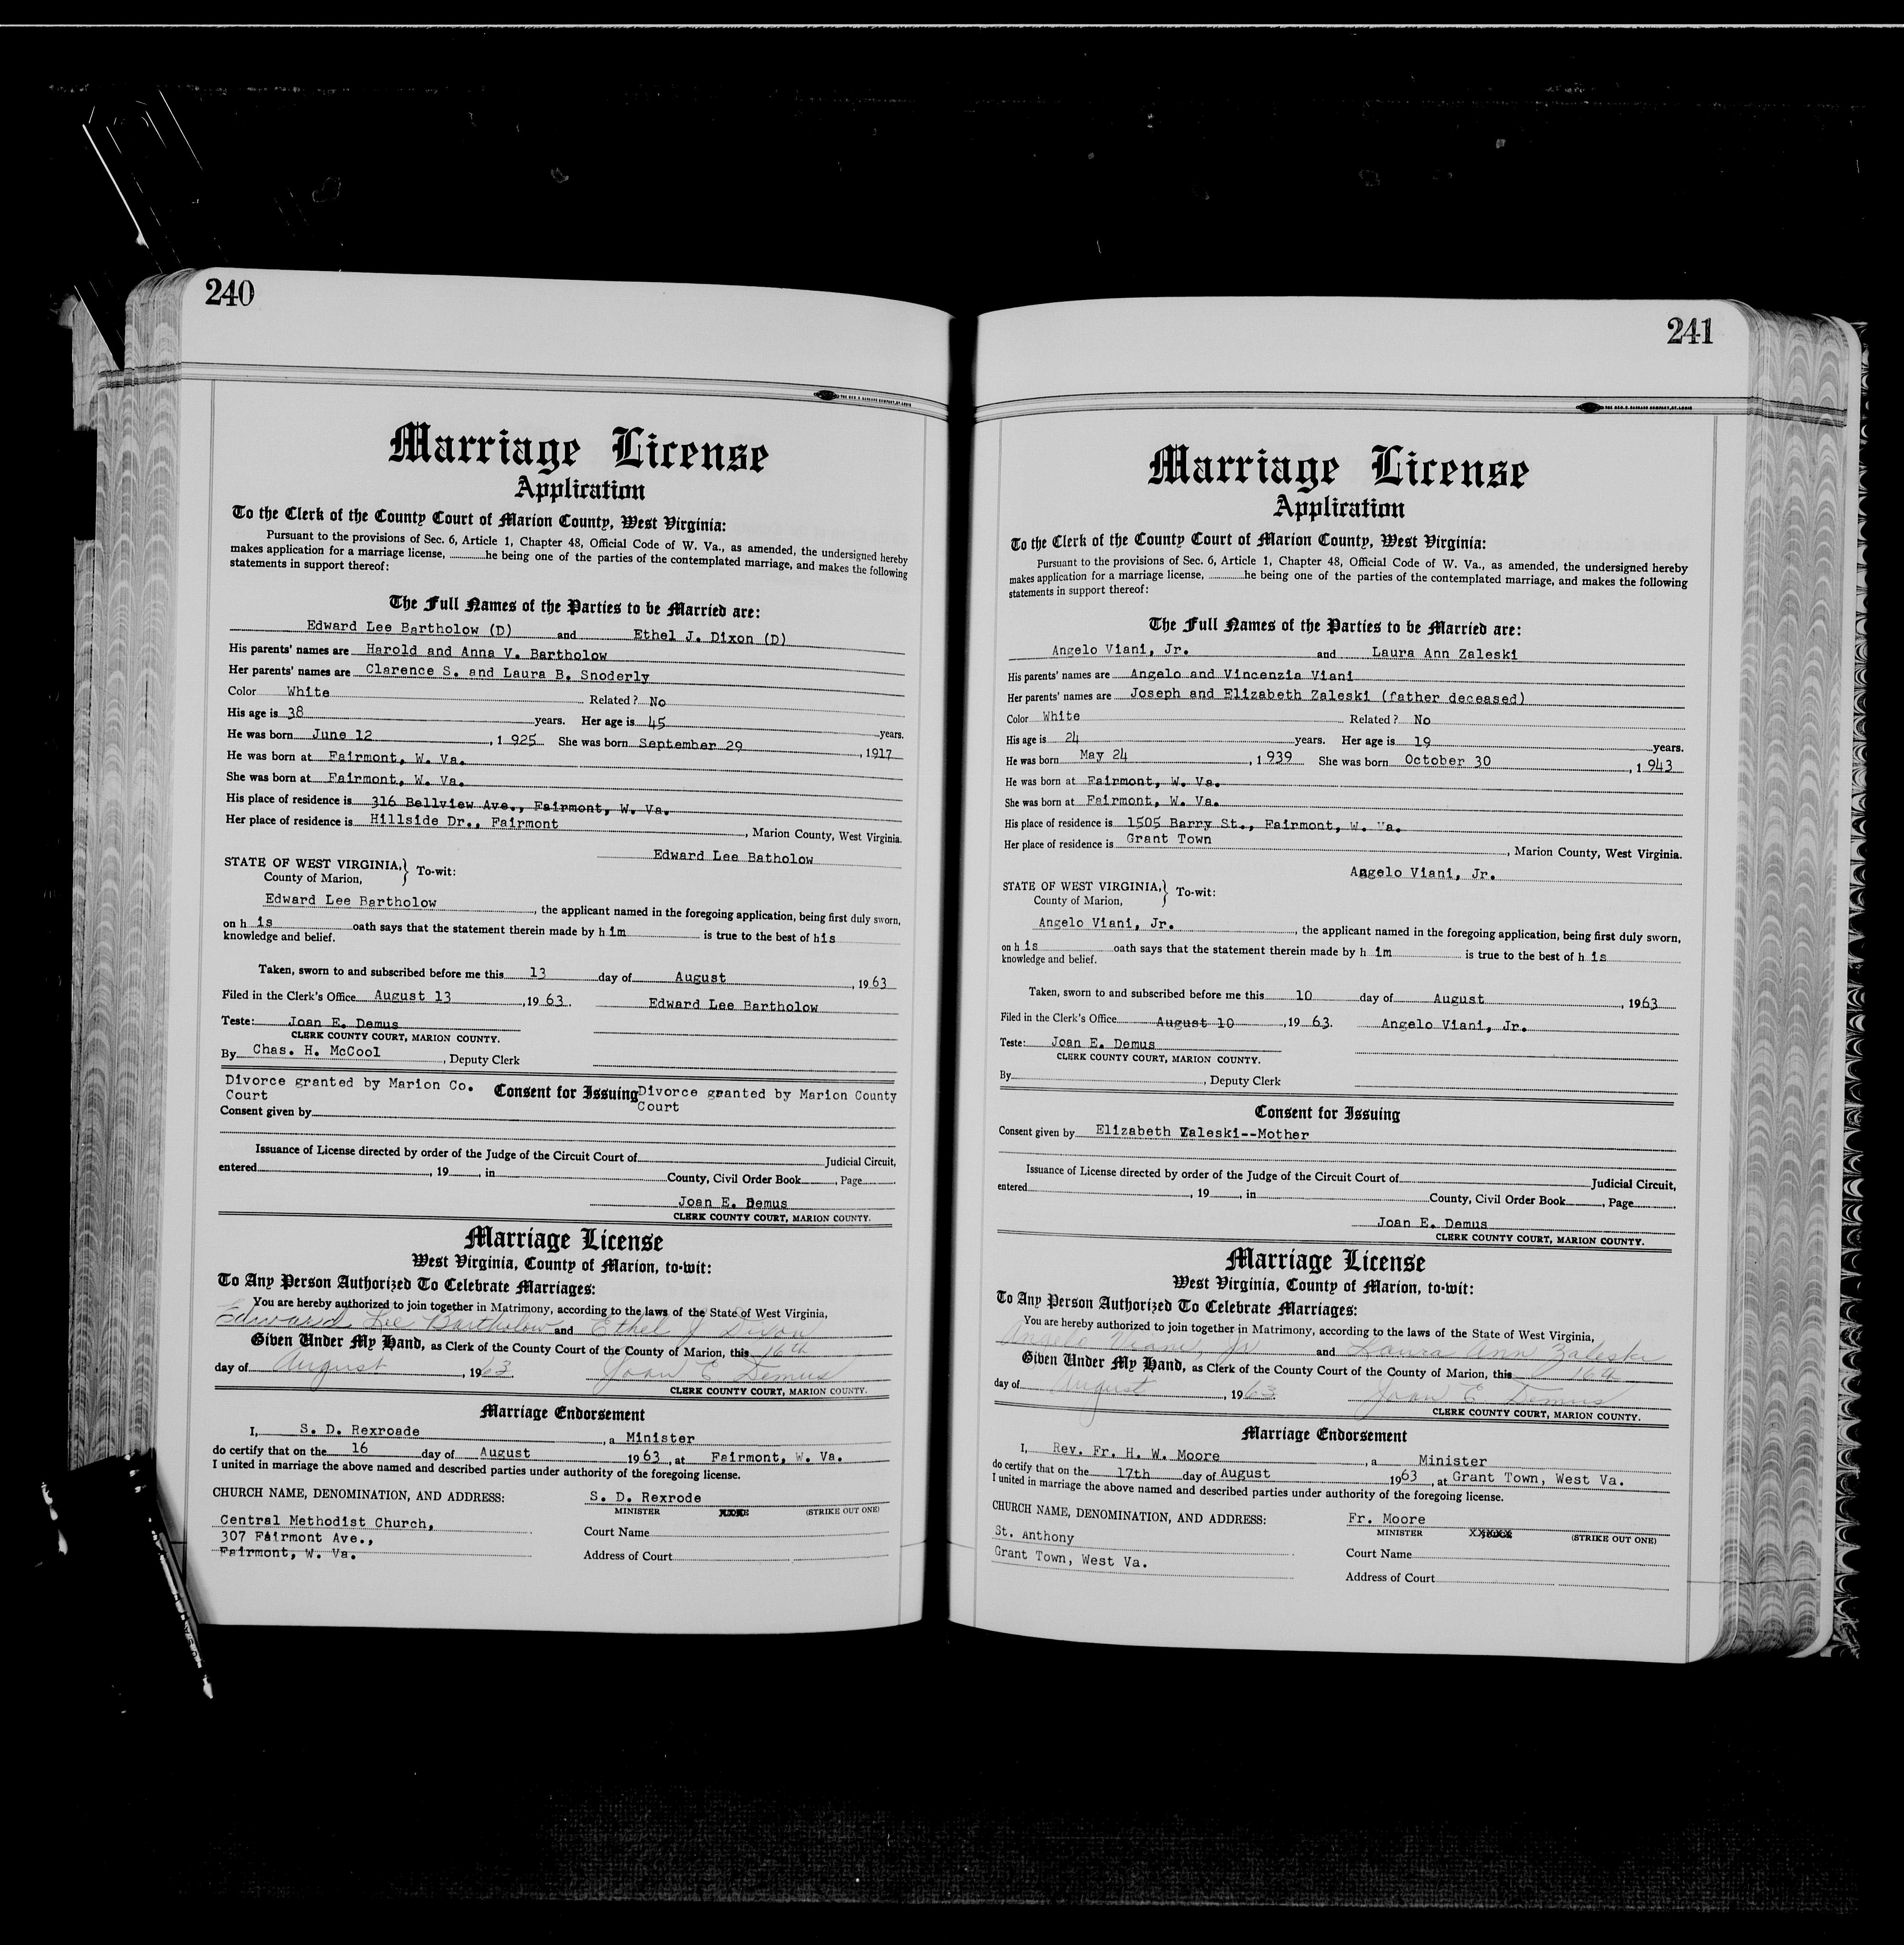 240
THE GEO. D. BARNARD COMPANY, ST. LOUIS
Marriage License
Application
To the Clerk of the County Court of Marion County, West Virginia:
Pursuant to the provisions of Sec. 6, Article 1, Chapter 48, Official Code of W. Va., as amended, the undersigned hereby
makes application for a marriage license, he being one of the parties of the contemplated marriage, and makes the following
statements in support thereof:
The Full Names of the Parties to be Married are:
Edward Lee Bartholow (D) and Ethel J. Dixon (D)
His parents' names are Harold and Anna V. Bartholow
Her parents' names are Clarence S. and Laura B. Snoderly
Color White Related? No
His age is 38 years. Her age is 45 years.
He was born June 12, 1925 She was born September 29, 1917
He was born at Fairmont, W. Va.
She was born at Fairmont, W. Va.
His place of residence is 316 Bellview Ave., Fairmont, W. Va.
Her place of residence is Hillside Dr., Fairmont, Marion County, West Virginia.
Edward Lee Batholow
STATE OF WEST VIRGINIA, } To-wit:
County of Marion,
Edward Lee Bartholow, the applicant named in the foregoing application, being first duly sworn,
on his oath says that the statement therein made by him is true to the best of his
knowledge and belief.
Taken, sworn to and subscribed before me this 13 day of August, 1963
Filed in the Clerk's Office August 13, 1963. Edward Lee Bartholow
Teste: Joan E. Demus
CLERK COUNTY COURT, MARION COUNTY.
By Chas. H. McCool, Deputy Clerk
Divorce granted by Marion Co. Consent for Issuing Divorce granted by Marion County
Court Court
Consent given by
Issuance of License directed by order of the Judge of the Circuit Court of Judicial Circuit,
entered, 19, in County, Civil Order Book, Page.
Joan E. Demus
CLERK COUNTY COURT, MARION COUNTY.
Marriage License
West Virginia, County of Marion, to-wit:
To Any Person Authorized To Celebrate Marriages:
You are hereby authorized to join together in Matrimony, according to the laws of the State of West Virginia,
Edward Lee Bartholow and Ethel J Dixon
Given Under My Hand, as Clerk of the County Court of the County of Marion, this 16th
day of August, 1963. Joan E Demus
CLERK COUNTY COURT, MARION COUNTY.
Marriage Endorsement
I, S. D. Rexroade, a Minister
do certify that on the 16 day of August 1963, at Fairmont, W. Va.
I united in marriage the above named and described parties under authority of the foregoing license.
CHURCH NAME, DENOMINATION, AND ADDRESS: S. D. Rexrode
MINISTER (STRIKE OUT ONE)
Central Methodist Church, Court Name
307 Fairmont Ave.,
Fairmont, W. Va. Address of Court
241
THE GEO. D. BARNARD COMPANY, ST. LOUIS
Marriage License
Application
To the Clerk of the County Court of Marion County, West Virginia:
Pursuant to the provisions of Sec. 6, Article 1, Chapter 48, Official Code of W. Va., as amended, the undersigned hereby
makes application for a marriage license, he being one of the parties of the contemplated marriage, and makes the following
statements in support thereof:
The Full Names of the Parties to be Married are:
Angelo Viani, Jr. and Laura Ann Zaleski
His parents' names are Angelo and Vincenzia Viani
Her parents' names are Joseph and Elizabeth Zaleski (father deceased)
Color White Related? No
His age is 24 years. Her age is 19 years.
He was born May 24, 1939 She was born October 30, 1943
He was born at Fairmont, W. Va.
She was born at Fairmont, W. Va.
His place of residence is 1505 Barry St., Fairmont, W. Va.
Her place of residence is Grant Town, Marion County, West Virginia.
Angelo Viani, Jr.
STATE OF WEST VIRGINIA, } To-wit:
County of Marion,
Angelo Viani, Jr., the applicant named in the foregoing application, being first duly sworn,
on his oath says that the statement therein made by him is true to the best of his
knowledge and belief.
Taken, sworn to and subscribed before me this 10 day of August, 1963
Filed in the Clerk's Office August 10, 1963. Angelo Viani, Jr.
Teste: Joan E. Demus
CLERK COUNTY COURT, MARION COUNTY.
By, Deputy Clerk
Consent for Issuing
Consent given by Elizabeth Zaleski--Mother
Issuance of License directed by order of the Judge of the Circuit Court of Judicial Circuit,
entered, 19, in County, Civil Order Book, Page.
Joan E. Demus
CLERK COUNTY COURT, MARION COUNTY.
Marriage License
West Virginia, County of Marion, to-wit:
To Any Person Authorized To Celebrate Marriages:
You are hereby authorized to join together in Matrimony, according to the laws of the State of West Virginia,
Angelo Viani, Jr and Laura Ann Zaleski
Given Under My Hand, as Clerk of the County Court of the County of Marion, this 16th
day of August, 1963. Joan E Demus
CLERK COUNTY COURT, MARION COUNTY.
Marriage Endorsement
I, Rev. Fr. H. W. Moore, a Minister
do certify that on the 17th day of August 1963, at Grant Town, West Va.
I united in marriage the above named and described parties under authority of the foregoing license.
CHURCH NAME, DENOMINATION, AND ADDRESS: Fr. Moore
MINISTER (STRIKE OUT ONE)
St. Anthony Court Name
Grant Town, West Va. Address of Court